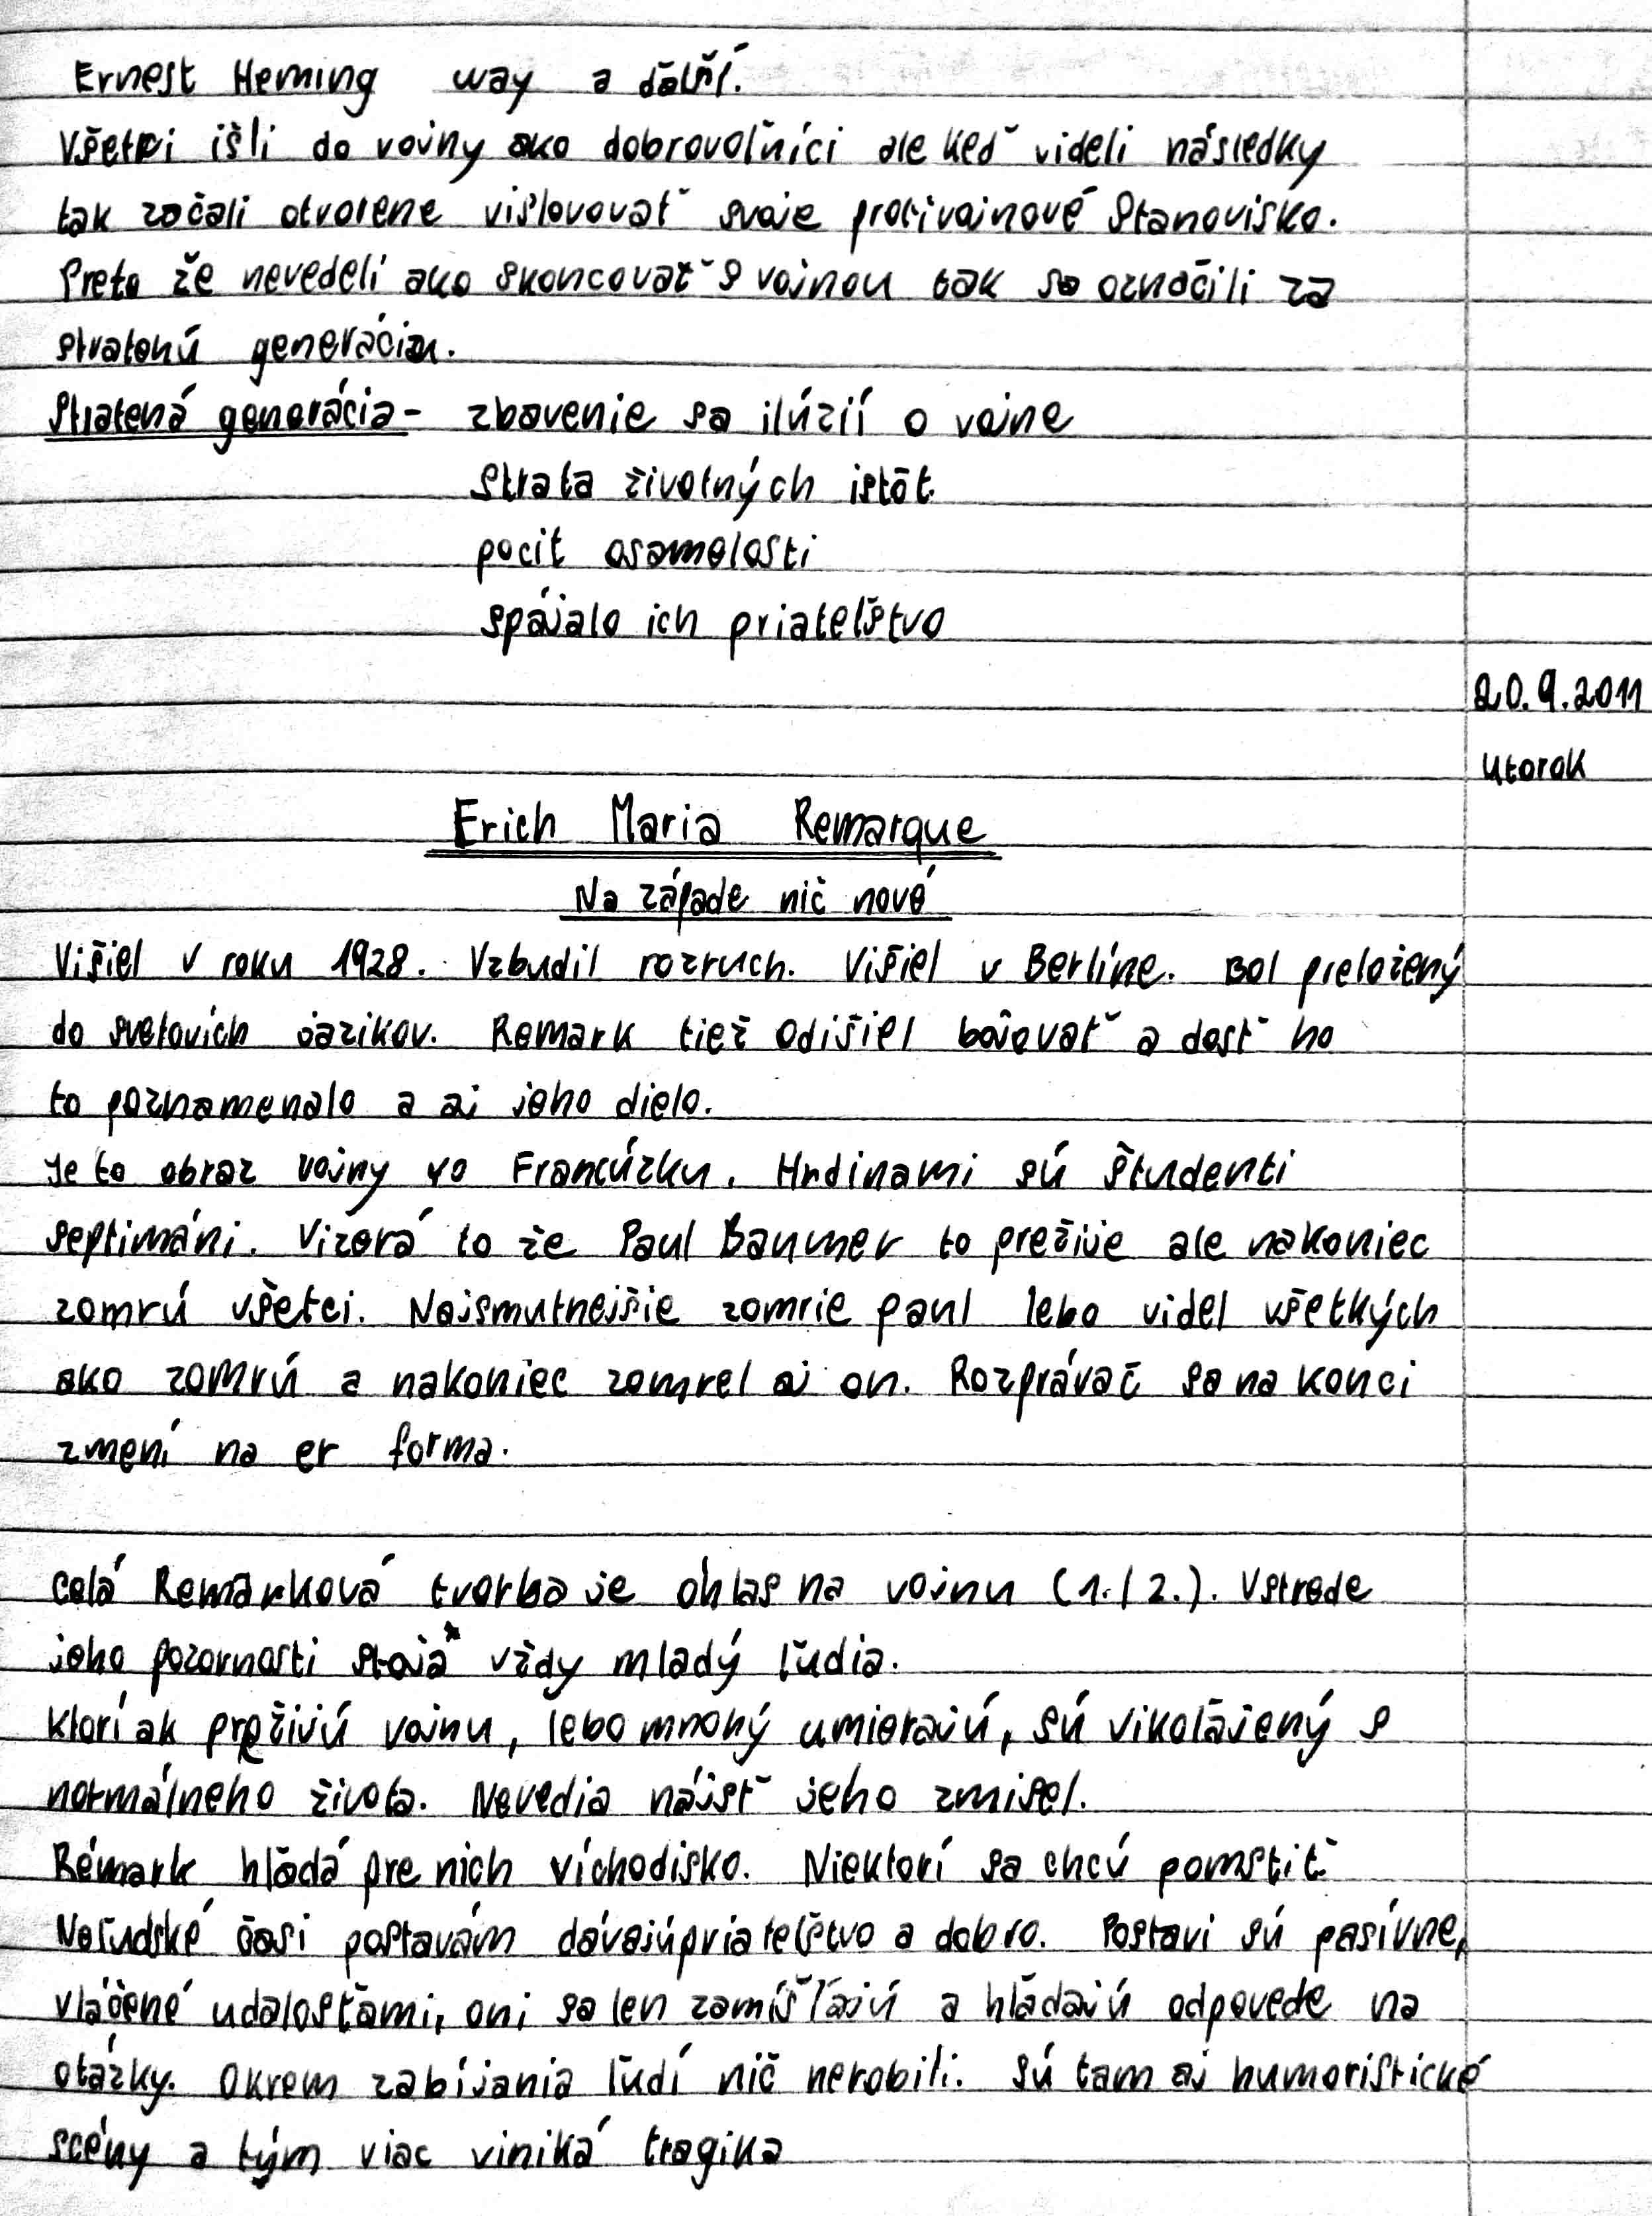 Ernest Heming way a ďalší.
Všetci išli do vojny ako dobrovoľníci ale keď videli následky
tak začali otvorene vislovovať svoje protivojnové stanovisko.
Preto že nevedeli ako skoncovať s vojnou tak sa označili za
stratenú generáciu.
Stratená generácia - zbavenie sa ilúzií o vojne
strata životných istôt
pocit osamelosti
spájalo ich priateľstvo
20.9.2011
Utorok
Erich Maria Remarque
Na západe nič nové
Višiel v roku 1928. Vzbudil rozruch. Višiel v Berlíne. Bol preložený
do svetovích jazikov. Remark tiež odišiel bojovať a dosť ho
to poznamenalo a aj jeho dielo.
Je to obraz vojny vo Francúzku. Hrdinami sú študenti
septimáni. Vizerá to že Paul Baumer to prežije ale nakoniec
zomrú všetci. Najsmutnejšie zomrie paul lebo videl všetkých
ako zomrú a nakoniec zomrel aj on. Rozprávač sa na konci
zmení na er forma.
Celá Remarková tvorba je ohlas na vojnu (1./2.). Vstrede
jeho pozornosti stoja vždy mladý ľudia.
Ktorí ak prežijú vojnu, lebo mnohý umierajú, sú vikolájený s
normálneho života. Nevedia nájsť jeho zmisel.
Rémark hľadá pre nich víchodisko. Niektorí sa chcú pomstiť
Neľudské časi postavám dávajú priateľstvo a dobro. Postavi sú pasívne,
vláčené udalosťami, oni sa len zamíšľajú a hľadajú odpovede na
otázky. Okrem zabíjania ľudí nič nerobili. Sú tam aj humoristické
scény a tým viac viniká tragika